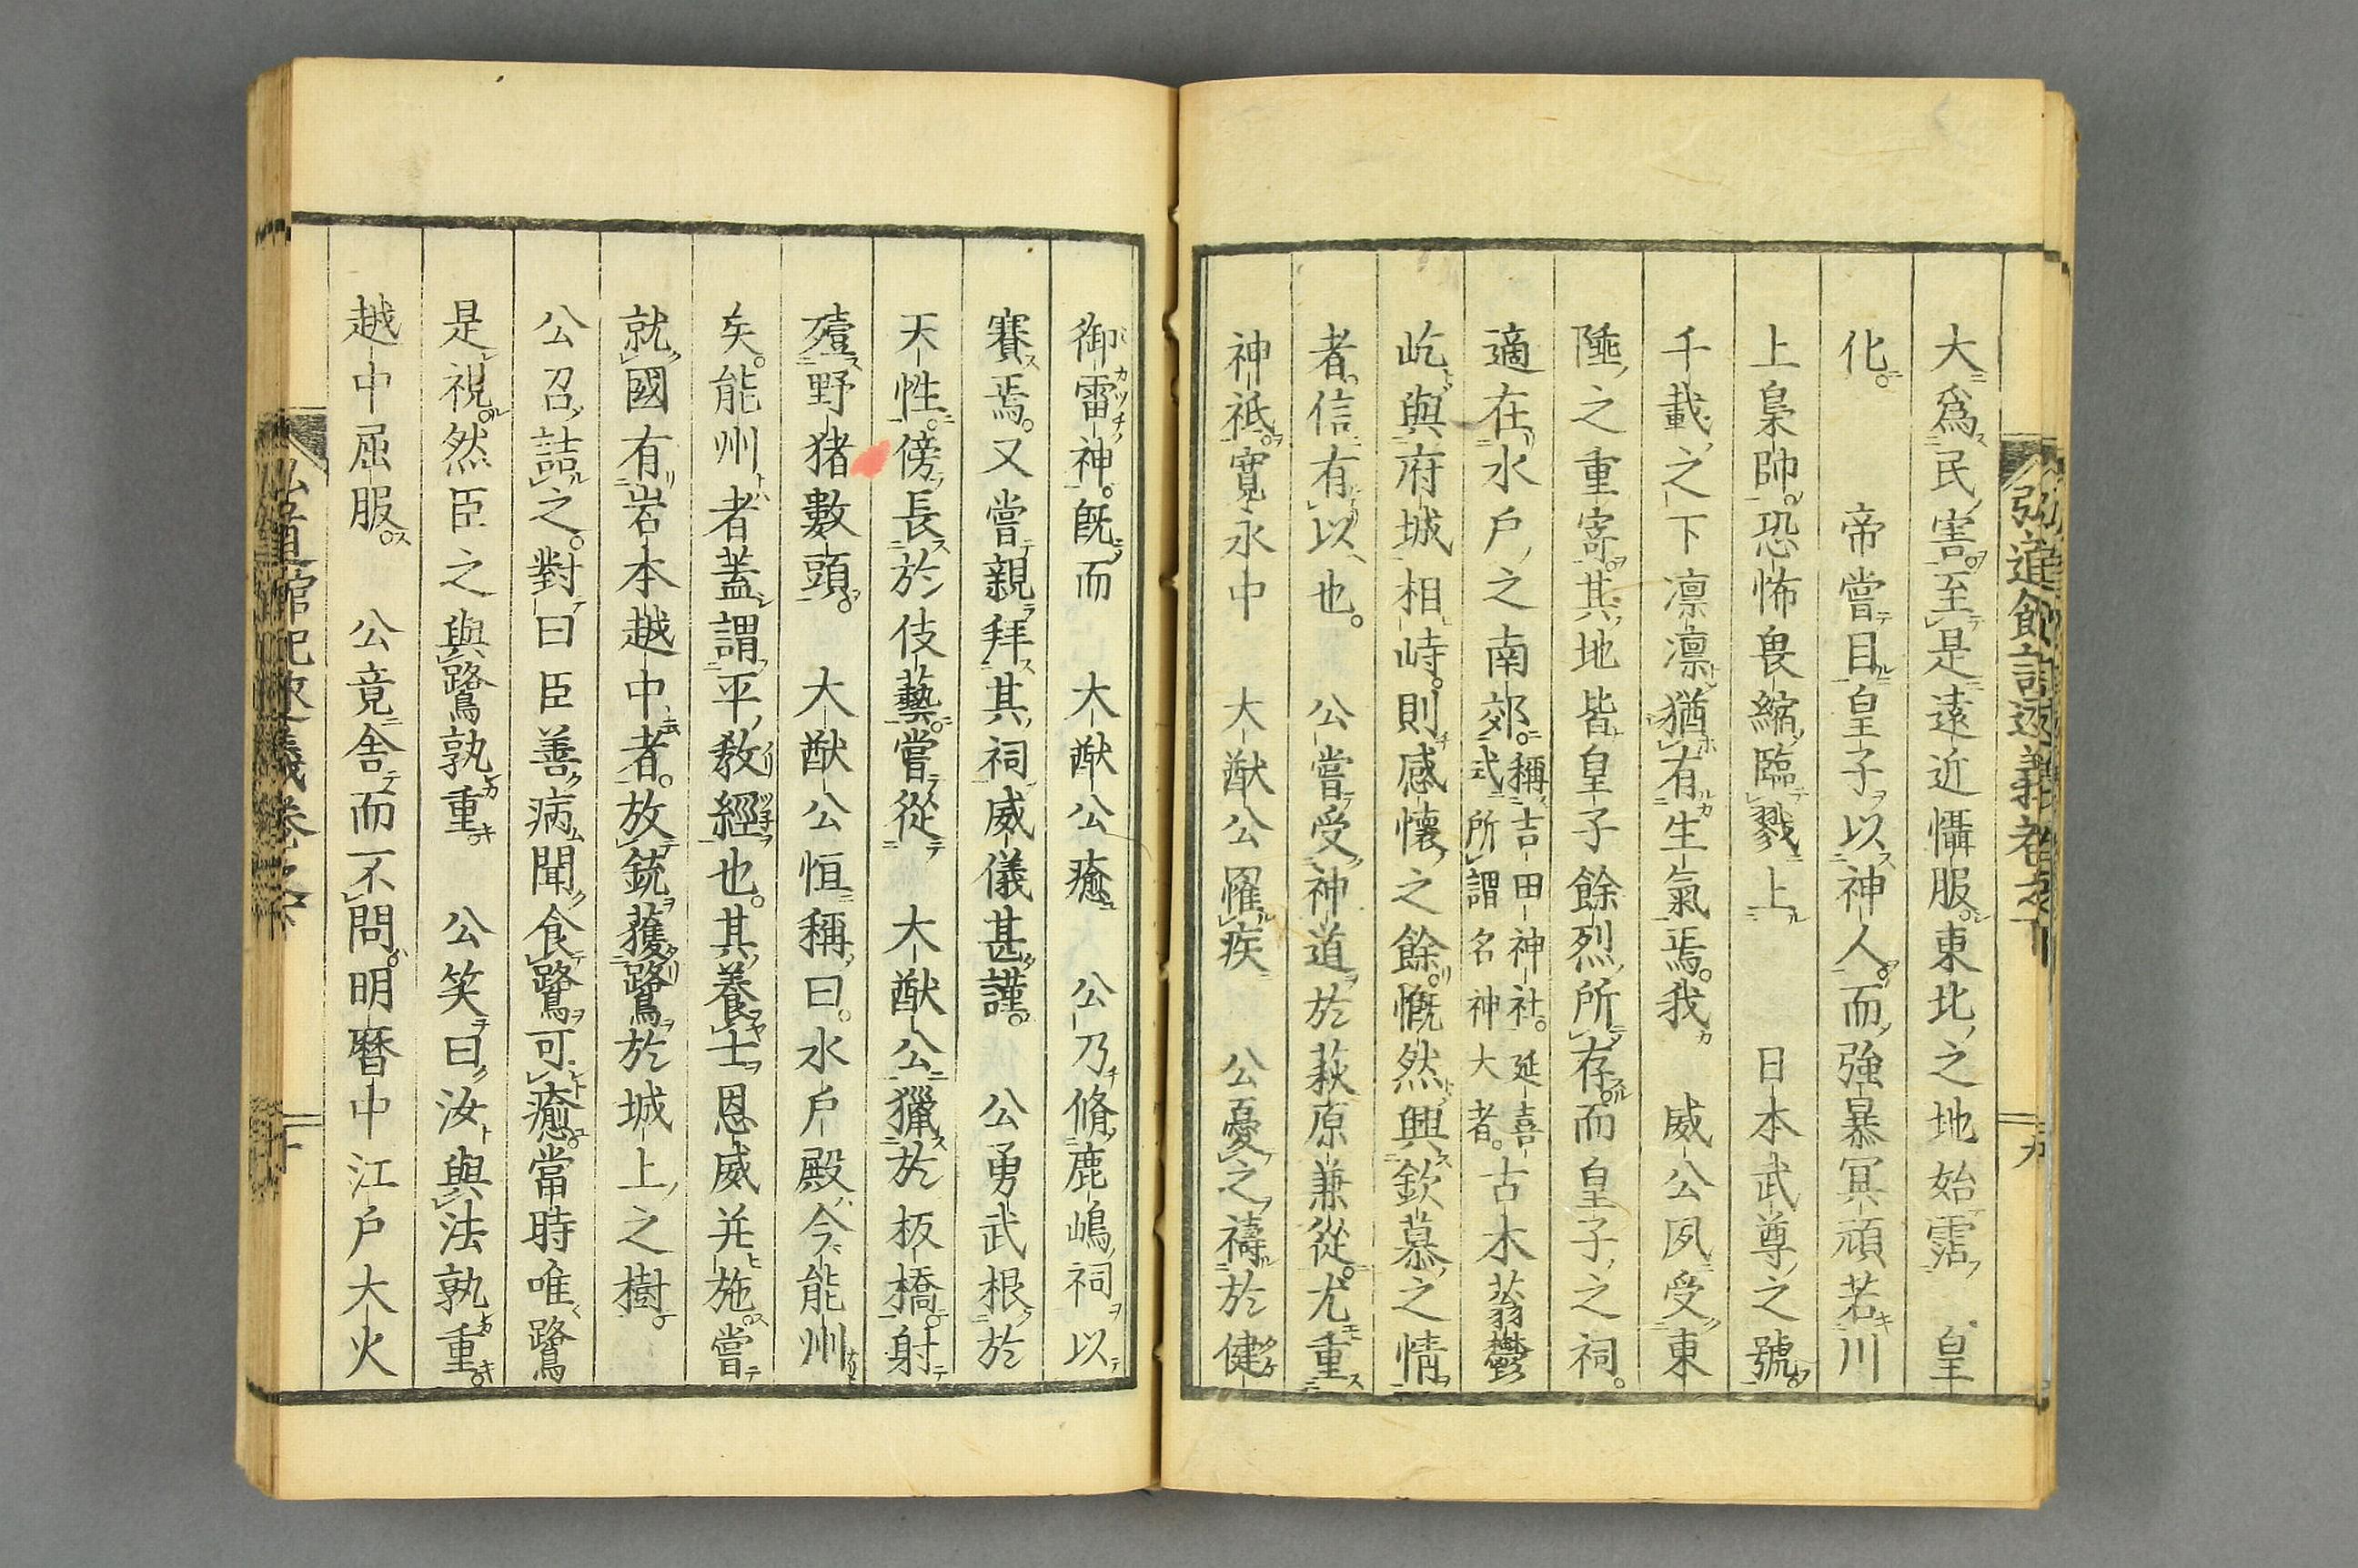 弘道館記述義卷之下
九
大爲民害。至是遠近懾服。東北之地始霑 皇
化。 帝嘗目皇子以神人。而強暴冥頑若川
上梟帥。恐怖畏縮臨戮上 日本武尊之號。
千載之下凛凛猶有生氣焉。我 威公夙受東
陲之重寄。其地皆皇子餘烈所存。而皇子之祠。
適在水戶之南郊。稱吉田神社。延喜式所謂名神大者。古木蓊鬱
屹與府城相峙。則感懷之餘。慨然興欽慕之情
者。信有以也。 公嘗受神道於萩原兼從。尤重
神祇。寬永中 大猷公罹疾 公憂之禱於健
御雷神。既而 大猷公癒 公乃脩鹿嶋祠以
賽焉。又嘗親拜其祠威儀甚謹。 公勇武根於
天性。傍長於伎藝。嘗從 大猷公獵於板橋射
殪野猪數頭。 大猷公恒稱曰。水戶殿今能州
矣。能州者蓋謂平敎經也。其養士恩威并施。嘗
就國有岩本越中者。放銃獲鷺於城上之樹。
公召詰之。對曰臣善病聞食鷺可癒。當時唯鷺
是視。然臣之與鷺孰重。 公笑曰汝與法孰重。
越中屈服。 公竟舍而不問。明曆中江戶大火
弘道館記述義卷之下
十